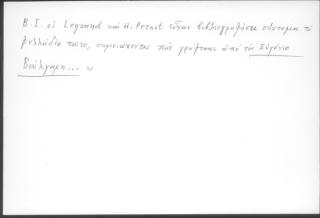 Β.Ι. οἱ Legrand καὶ H. Pernot εἶχαν βιβλιογραφήσει σύντομα τὸ
φυλλάδιο τοῦτο, σημειώνοντας πὼς γράφτηκε ἀπὸ τὸν Εὐγένιο
Βούλγαρη... »